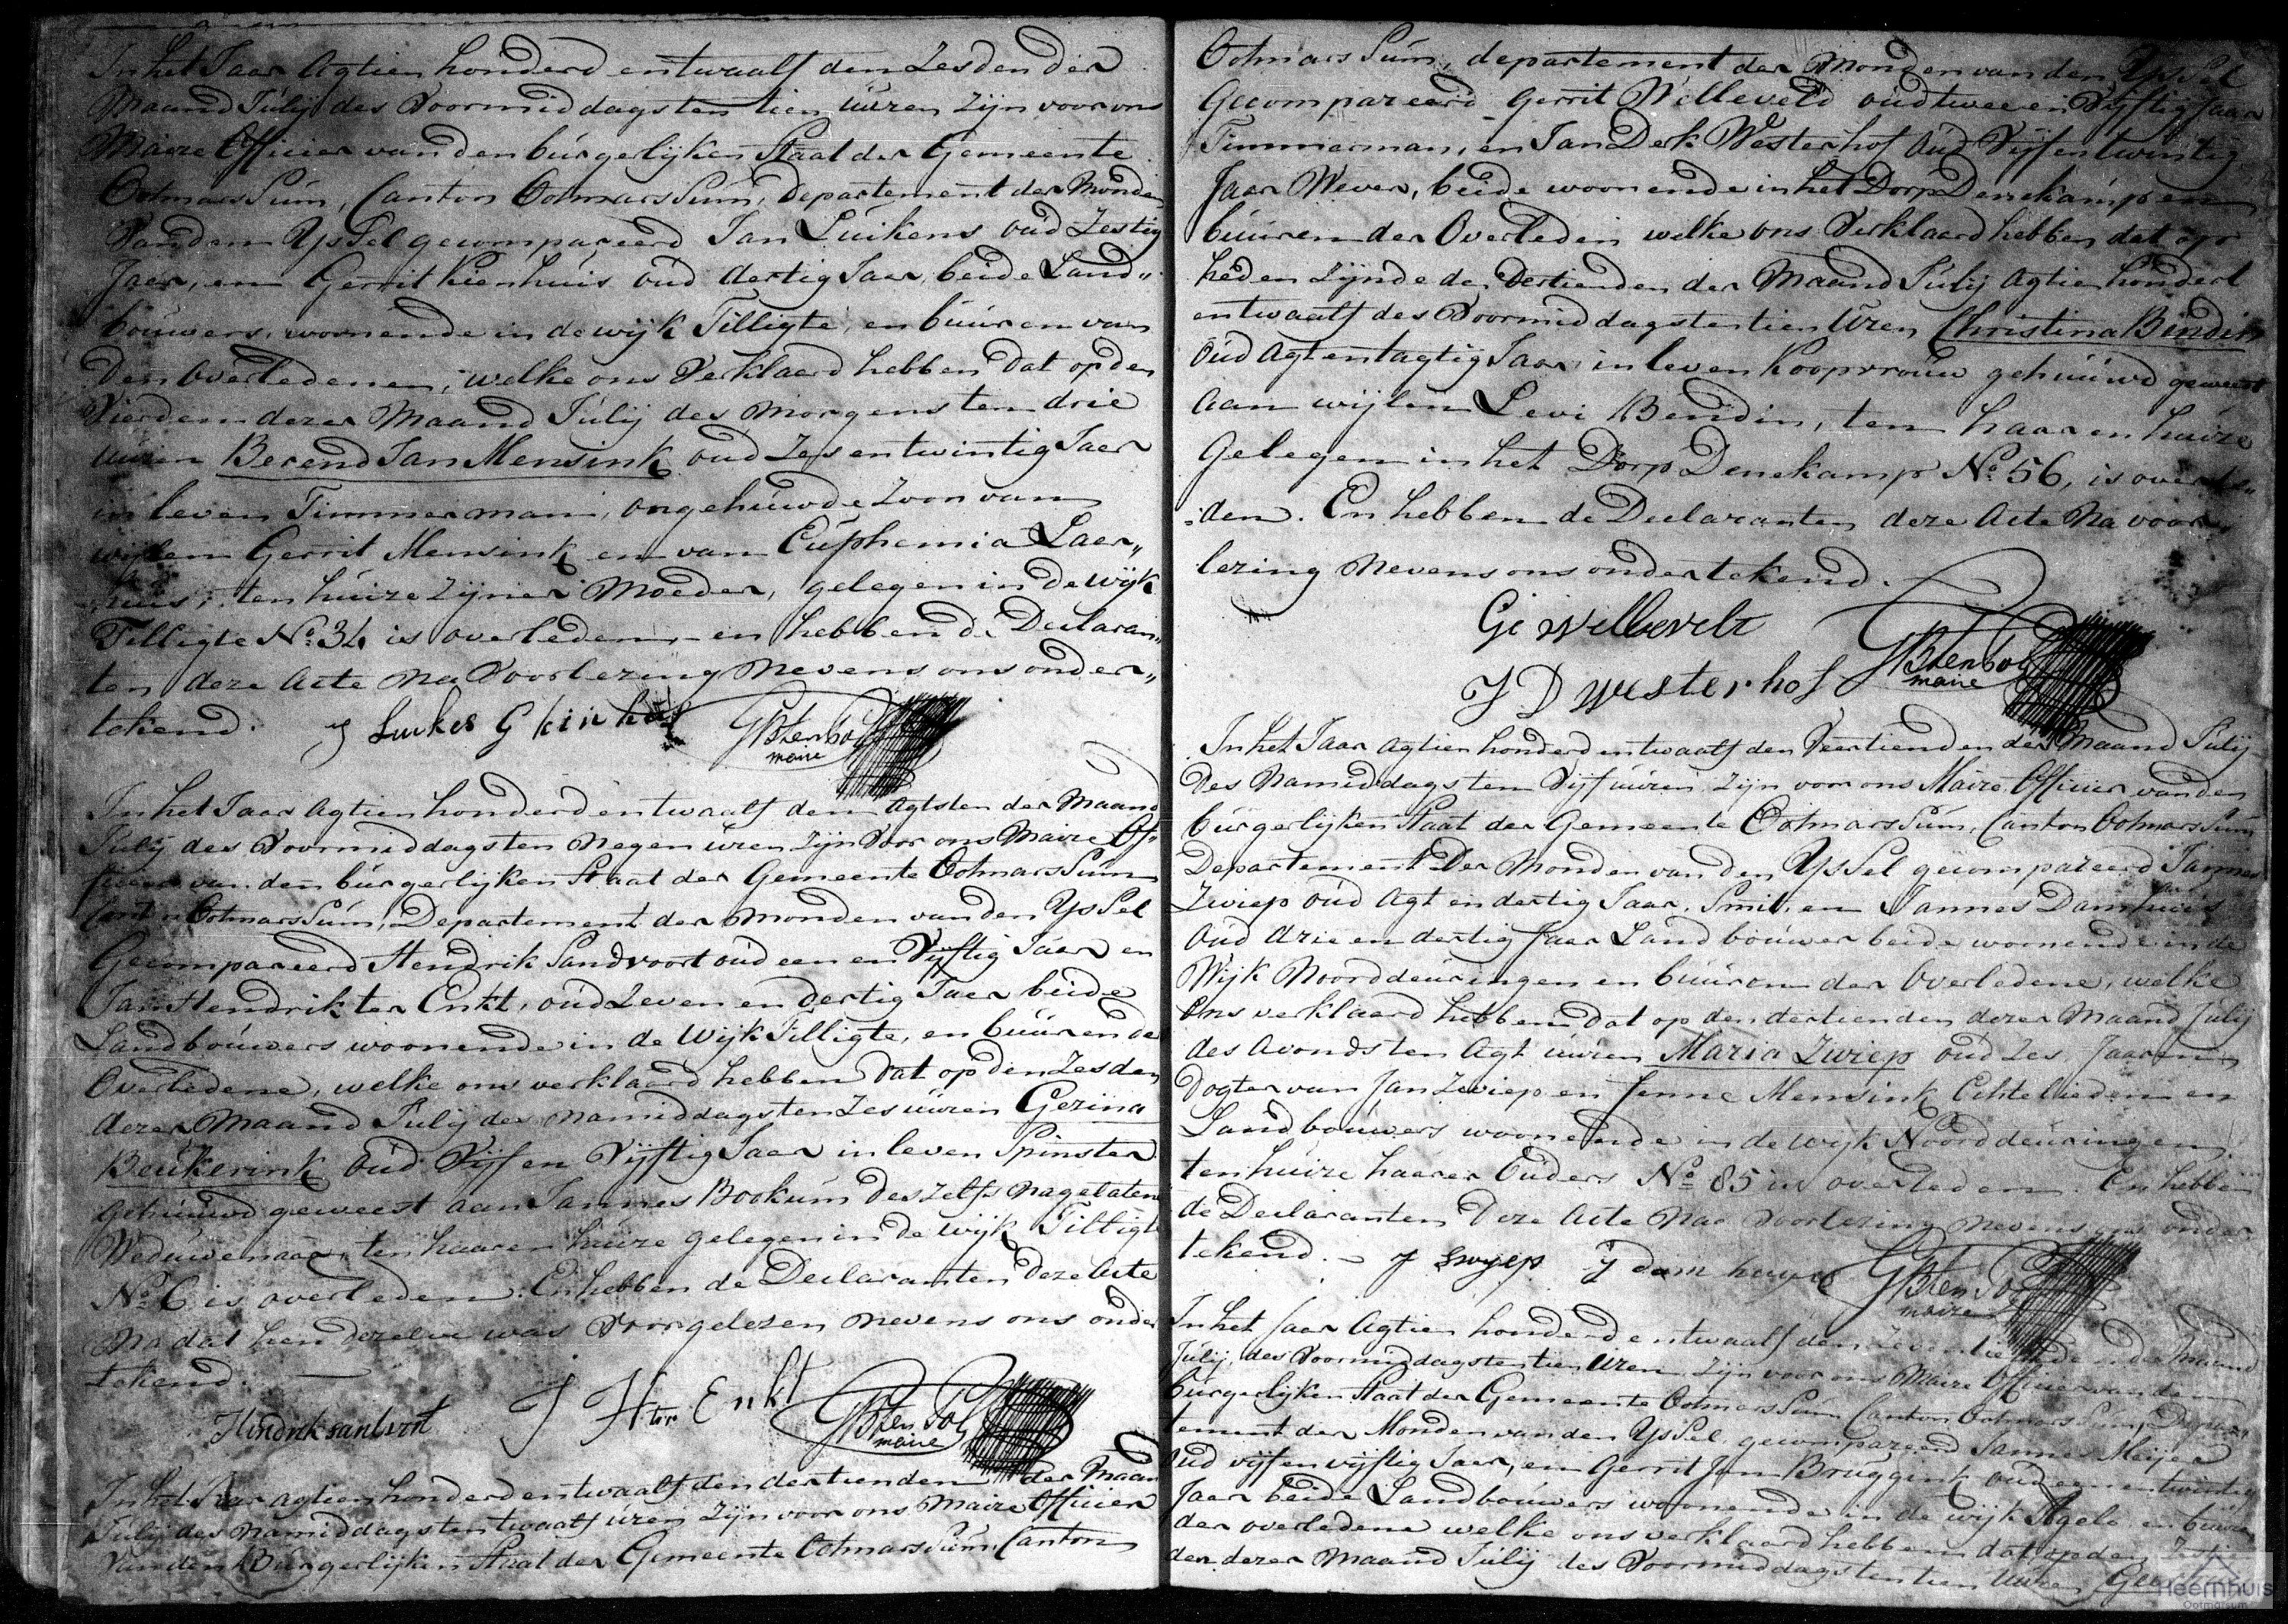 In het Jaar Agtien honderd en twaalf den Zesden der
Maand Julij des Voormiddags ten tien uuren zijn voor ons
Maire Officier van den burgerlijken Staat der Gemeente
Ootmarssum, Canton Ootmarssum, Departement der Monden
van den Yssel gecompareerd Jan Luikens oud Zestig
Jaer, en Gerrit Kienhuis oud dertig Jaar, beide Land„
bouwers, woonende in de wijk Tilligte, en buuren van
den Overledenen, welke ons Verklaard hebben dat op den
Vierden dezer Maand Julij des morgens ten drie
uuren Berend Jan Mensink oud Zes en twintig Jaer
in leven Timmerman, ongehuwde Zoon van
wijlen Gerrit Mensink en van Euphemia Laer„
huis, ten huize zijner Moeder, gelegen in de wijk
Tilligte No. 34 is overleden, en hebben de Declaran„
ten deze Acte na Voorlezing nevens ons onder„
tekend. J Luikes G kin huis GB ten Pol
maire
In het Jaar Agtien honderd en twaalf den Agtsten der Maand
Julij des Voormiddags ten Negen uren zijn Voor ons Maire Of„
ficier van den burgerlijken Staat der Gemeente Ootmarssum
Canton Ootmarssum, Departement der Monden van den Yssel
Gecompareerd Hendrik Sandvoort oud een en Vijftig Jaar en
Jan Hendrik ter Enkt, oud Zeven en dertig Jaer beide
Landbouwers woonende in de Wijk Tilligte, en buuren der
Overledene, welke ons verklaard hebben dat op den Zesden
dezer Maand Julij des namiddags ten Zes uuren Gezina
Beukerink Oud Vijf en Vijftig Jaer in leven Spinster
gehuuwd geweest aan Jannes Bookum deszelfs nagelaten
Weduwenaar, ten haaren huize gelegen in de wijk Tilligte
No. 6 is overleden. En hebben de Declaranten deze Acte
Na dat hen dezelve was Voorgelezen nevens ons onder
tekend.
Hindrik santvort J H ter Enkt GB ten Pol
maire
In het Jaar agtien honderd en twaalf den dertienden der Maand
Julij des namiddags ten twaalf uren zijn voor ons Maire Officier
van den Burgerlijken Staat der Gemeente Ootmarssum, Canton
Ootmarssum, departement der Monden van den Yssel
Gecompareerd Gerrit Willeveld oud twee en Vijftig Jaar
Timmerman, en Jan Derk Westerhof Oud Vijf en twintig
Jaar Wever, beide woonende in het Dorp Denekamp en
buuren der Overleden welke ons Verklaard hebben dat op
heden zijnde de dertienden der Maand Julij Agtien honderd
en twaalf des Voormiddags ten tien Uren Christina Bendin
Oud Agt en tagtig Jaar, in leven Koopvrouw gehuuwd geweest
aan wijlen Levi Bendin, ten haaren huize
Gelegen in het Dorp Denekamp No. 56, is overle„
:den. En hebben de Declaranten deze Acte Na voor
lezing Nevens ons ondertekend.
G Willevelt
J D westerhof GB ten Pol
maire
In het Jaar Agtien honderd en twaalf den Veertienden der Maand Julij
des Namiddags ten Vijf uuren zijn voor ons Maire Officier van den
burgerlijken Staat der Gemeente Ootmarssum, Canton Ootmarssum
Departement der Monden van den Yssel gecompareerd Jannes
Zwiep oud Agt en dertig Jaar, Smit, en Jannes Damhuis
Oud drie en dertig Jaar Landbouwer beide woonende in de
Wijk Noorddeuringen en buuren der Overledene, welke
Ons verklaard hebben dat op den dertienden dezer Maand Julij
des avonds ten Agt uuren Maria Zwiep oud Zes Jaaren
Dogter van Jan Zwiep en Jenne Mensink Echtelieden en
Landbouwers woonende in de wijk Noorddeuringen
ten huize haarer Ouders No. 85 is overleden. En hebben
de Declaranten deze Acte Na Voorlezing nevens ons onder
tekend. J swyep J dam huys GB ten Pol
maire
In het Jaar Agtien honderd en twaalf den Zeventienden der Maand
Julij, des Voormiddags ten tien Uren zijn voor ons Maire Officier van den
burgerlijken Staat der Gemeente Ootmarssum Canton Ootmarssum, Depar
tement der Monden van den Yssel gecompareerd Jannes Meijer
Oud vijf en vijftig Jaer, en Gerrit Jan Bruggink oud een en twintig
Jaer beide Landbouwers woonende in de wijk Agelo en buuren
der overledene welke ons verklaard hebben dat op den Zestien
den dezer Maand Julij des Voormiddags ten tien Uuren
Heemhuis
Ootmarsum